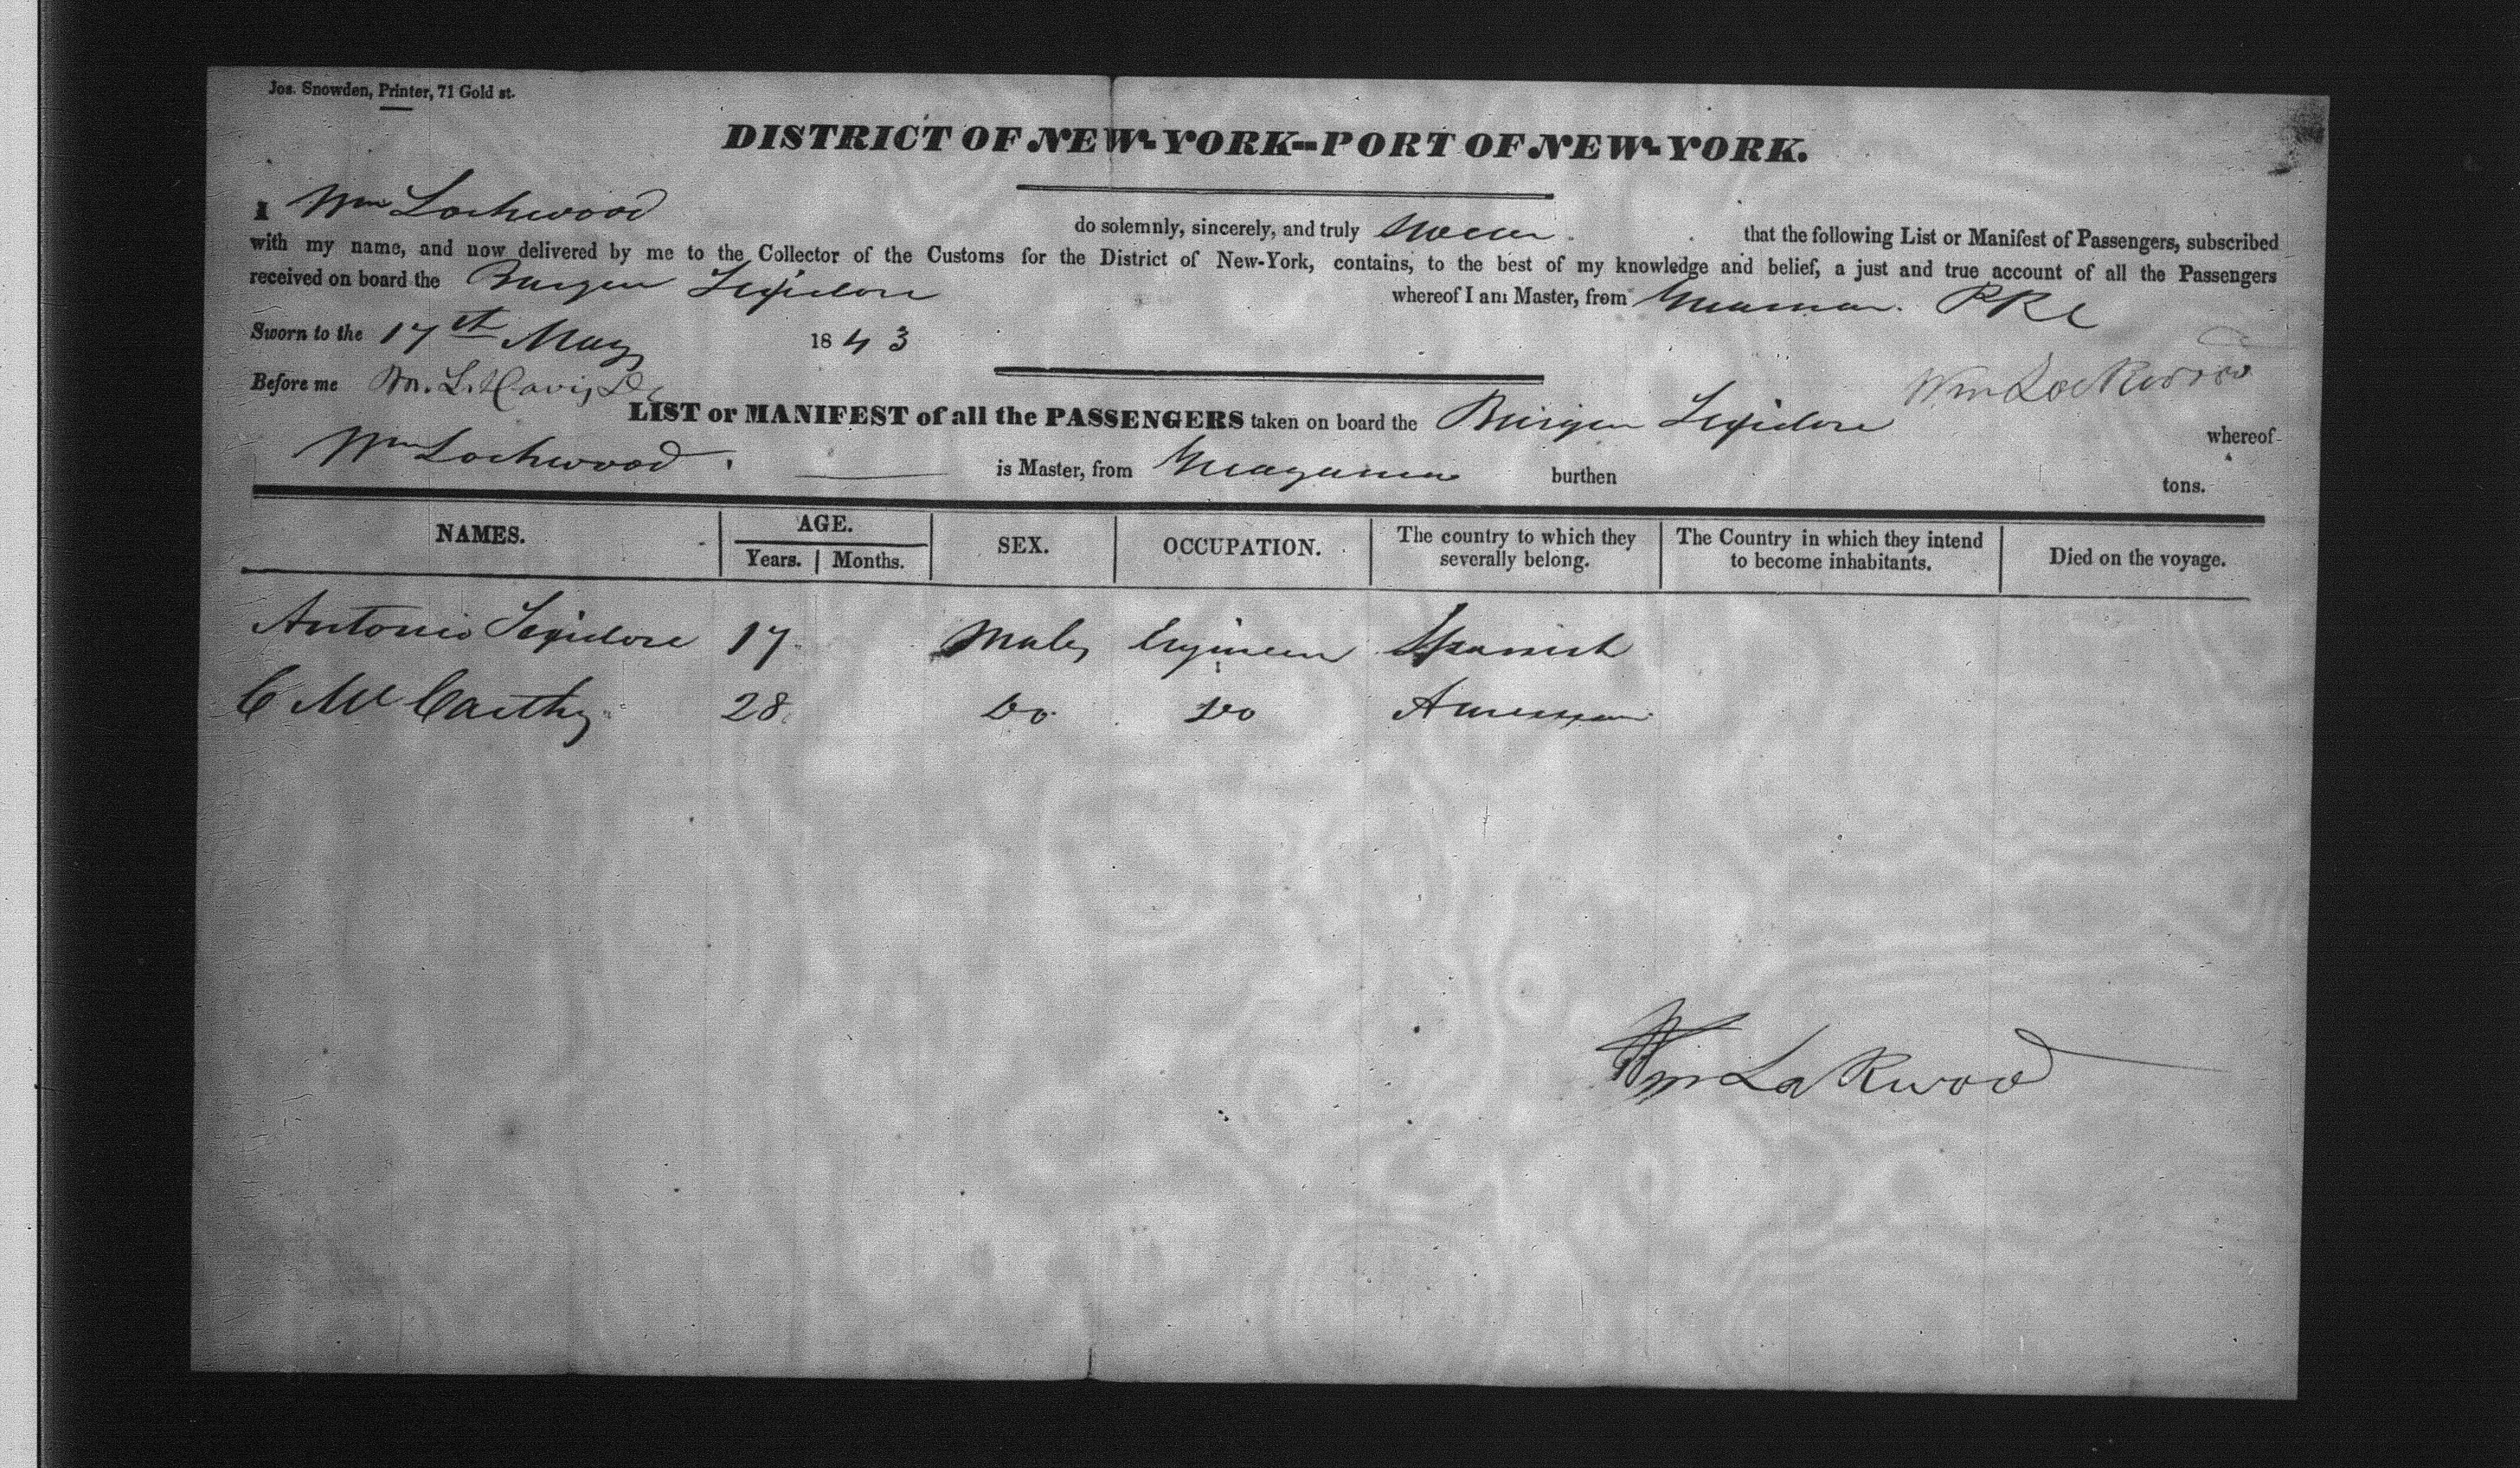 Jos. Snowden, Printer, 71 Gold st.
DISTRICT OF NEW-YORK--PORT OF NEW-YORK.
I Wm Lockwood do solemnly, sincerely, and truly swear that the following List or Manifest of Passengers, subscribed
with my name, and now delivered by me to the Collector of the Customs for the District of New-York, contains, to the best of my knowledge and belief, a just and true account of all the Passengers
received on board the whereof I am Master, from
Sworn to the 17th May 1843
Before me
Wm Lockwood
LIST or MANIFEST of all the PASSENGERS taken on board the whereof
Wm Lockwood is Master, from burthen tons.
NAMES. AGE. SEX. OCCUPATION. The country to which they severally belong. The Country in which they intend to become inhabitants. Died on the voyage.
Years. Months.
Antonio 17 Male Engineer Spanish
C McCarthy 28 Do Do American
Wm Lockwood